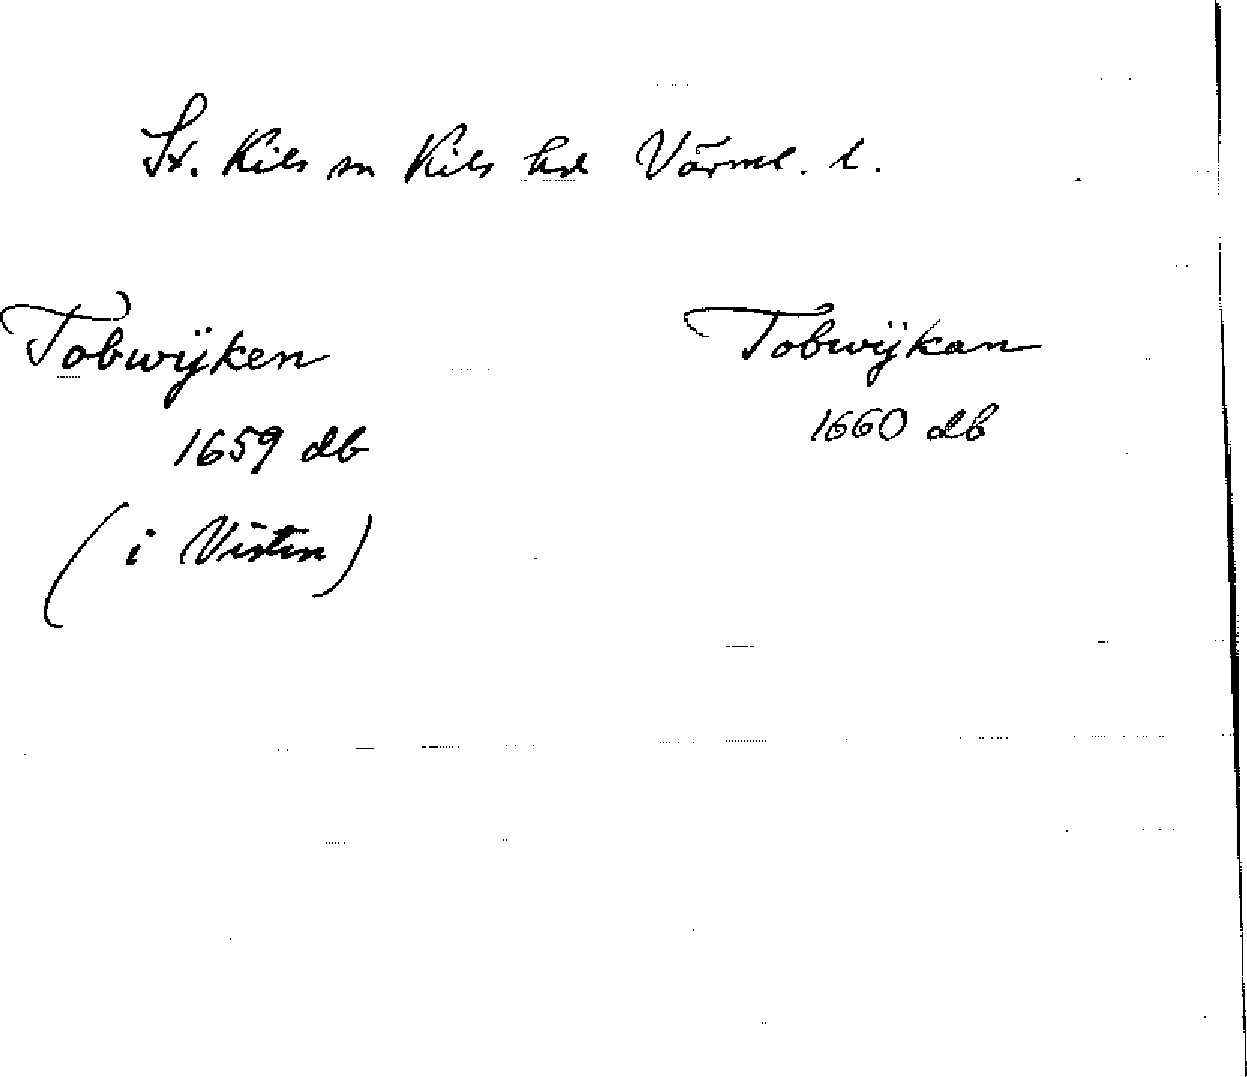 St. Kils sn Kils hd Värml. l.
Tobwÿken
1659 db
(i Visten)
Tobwÿkan
1660 db